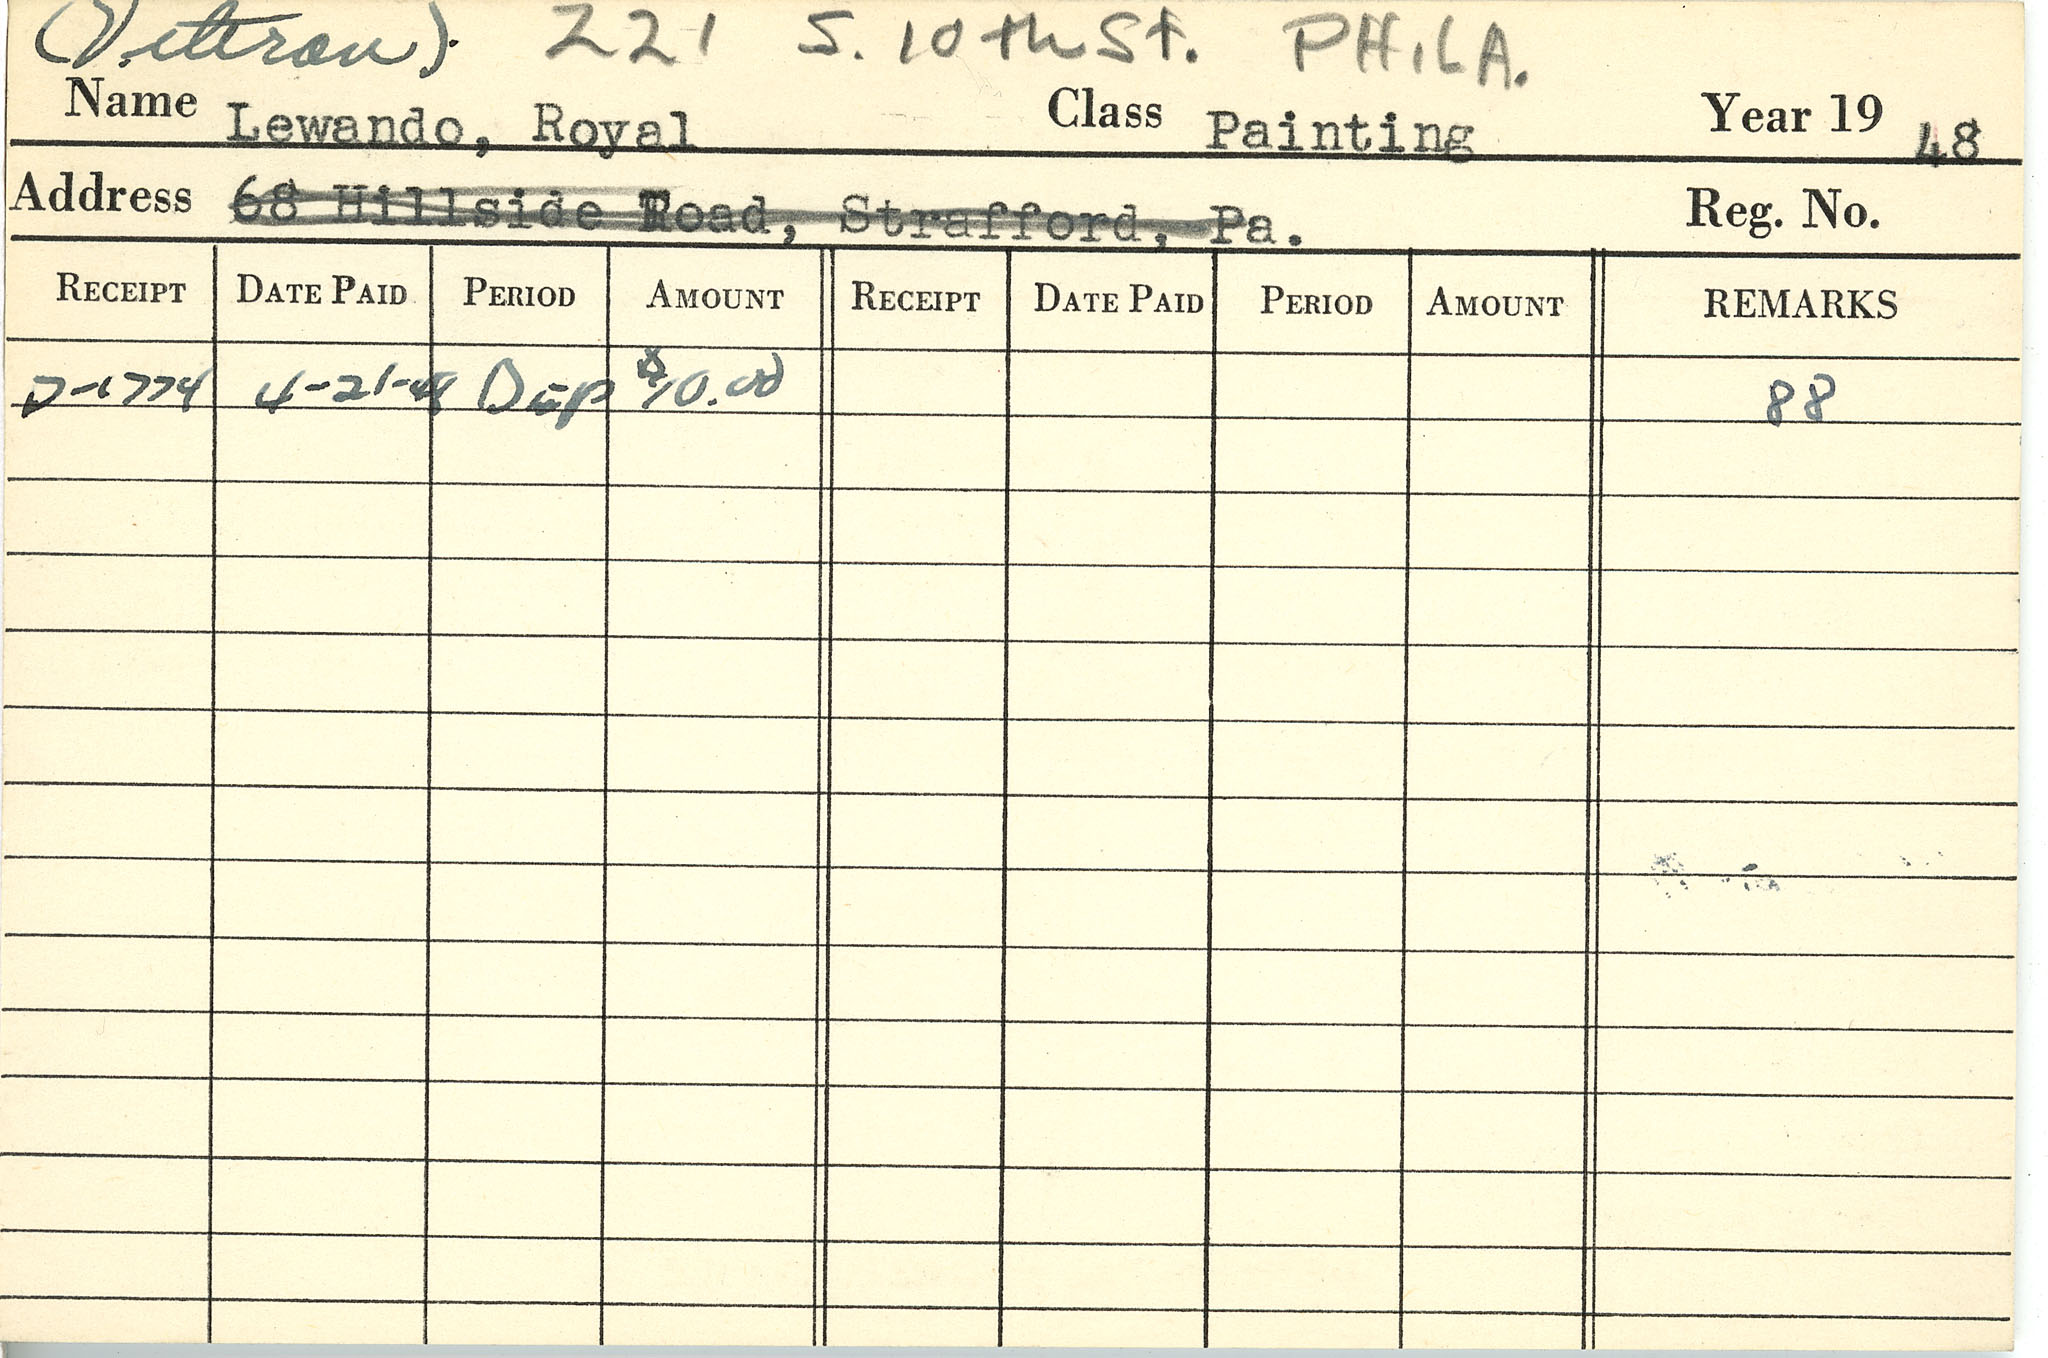 (Veteran). 221 S. 10th St. PHILA.
Name Lewando, Royal Class Painting Year 19 48
Address 68 Hillside Road, Strafford, Pa. Reg. No.
RECEIPT DATE PAID PERIOD AMOUNT RECEIPT DATE PAID PERIOD AMOUNT REMARKS
D-1774 4-21-48 DEP $10.00 88